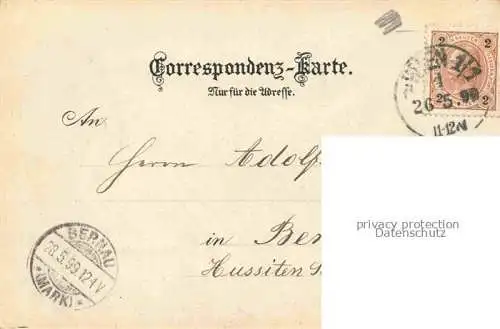 Correspondenz-Karte.
Nur für die Adresse.
2 2
2 2
WIEN 1/1
1
26.5.99
11-12N
An
Herrn Adolf
privacy protection
Datenschutz
in Ber
Hussiten S
BERNAU
28.5.99.12-1V
* (MARK) *